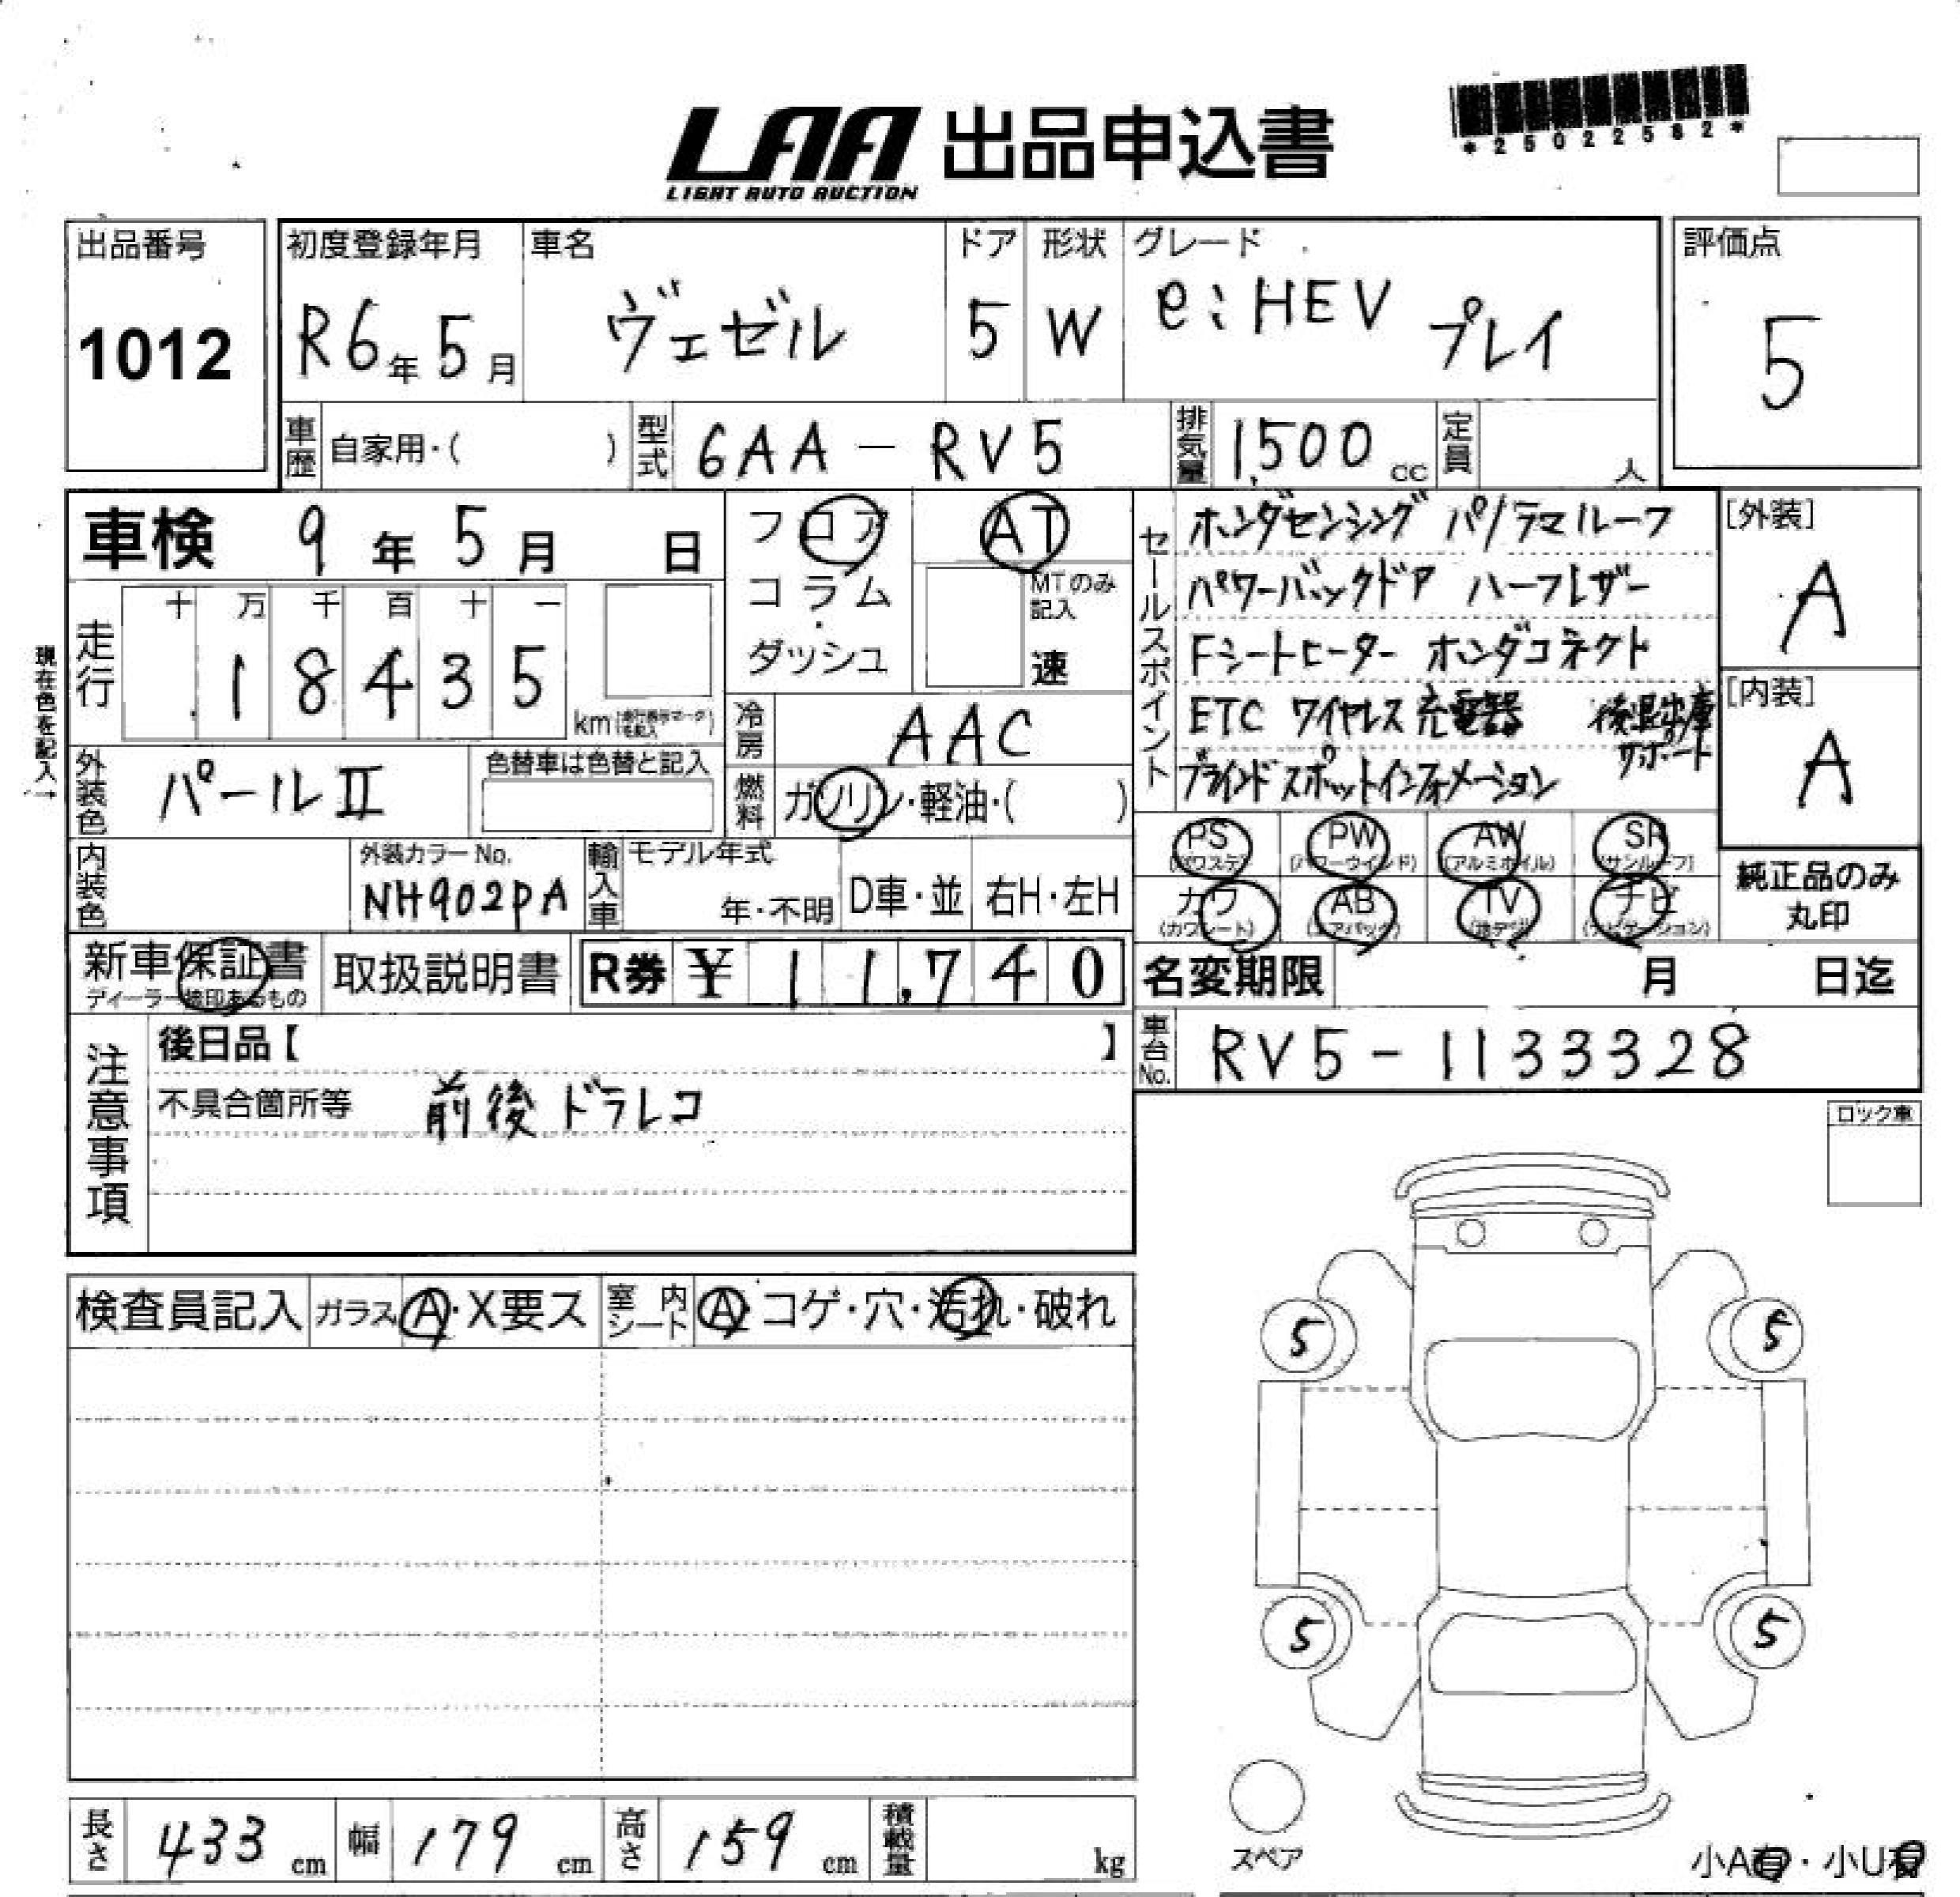 LAA 出品申込書
LIGHT AUTO AUCTION
*25022582*
出品番号
1012
初度登録年月
R6年5月
車名
ヴェゼル
ドア
5
形状
W
グレード
e:HEV プレイ
評価点
5
車歴 自家用・( )
型式 6AA-RV5
排気量 1,500 cc
定員 人
車検 9年5月 日
走行
十 万 千 百 十 一
18435
km
現在色を記入→
フロア
コラム
・
ダッシュ
AT
MTのみ記入
速
冷房 AAC
燃料 ガソリン・軽油・( )
セールスポイント
ホンダセンシング パノラマルーフ
パワーバックドア ハーフレザー
Fシートヒーター ホンダコネクト
ETC ワイヤレス充電器 後退出庫サポート
ブラインドスポットインフォメーション
[外装]
A
[内装]
A
外装色 パールⅡ
色替車は色替と記入
内装色
外装カラーNo.
NH902PA
輸入車
モデル年式
年・不明
D車・並
右H・左H
PS (パワステ)
PW (パワーウインド)
AW (アルミホイル)
SR (サンルーフ)
カワ (カワシート)
AB (エアバック)
TV (地デジ)
ナビ (ナビゲーション)
純正品のみ
丸印
新車保証書
ディーラー捺印あるもの
取扱説明書
R券 ¥11,740
名変期限 月 日迄
車台No. RV5-1133328
注意事項
後日品【 】
不具合箇所等 前後ドラレコ
ロック車
検査員記入
ガラス A・X要ス
室内シート A・コゲ・穴・汚れ・破れ
5
5
5
5
スペア
小A有・小U有
長さ 433 cm
幅 179 cm
高さ 159 cm
積載量 kg